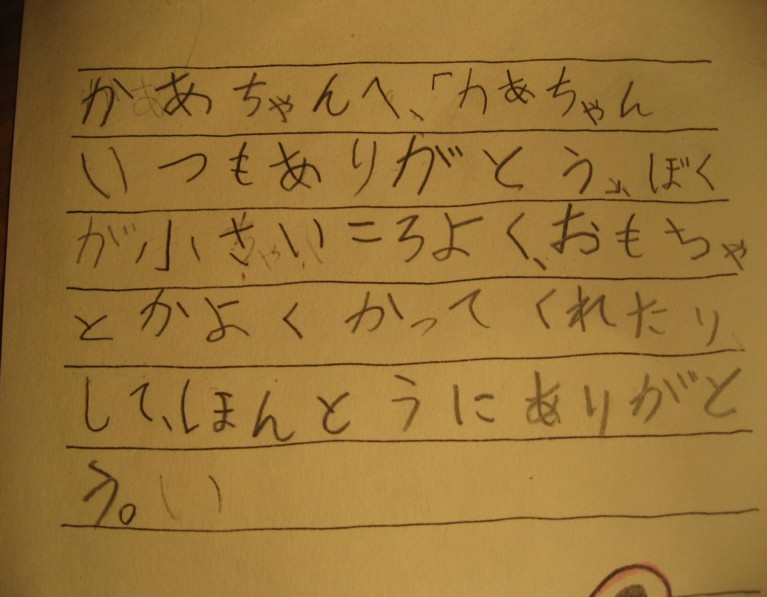 かあちゃんへ、「かあちゃん
いつもありがとう」、ぼく
が小さいころよく、おもちゃ
とかよくかってくれたり
して、ほんとうにありがと
う。い